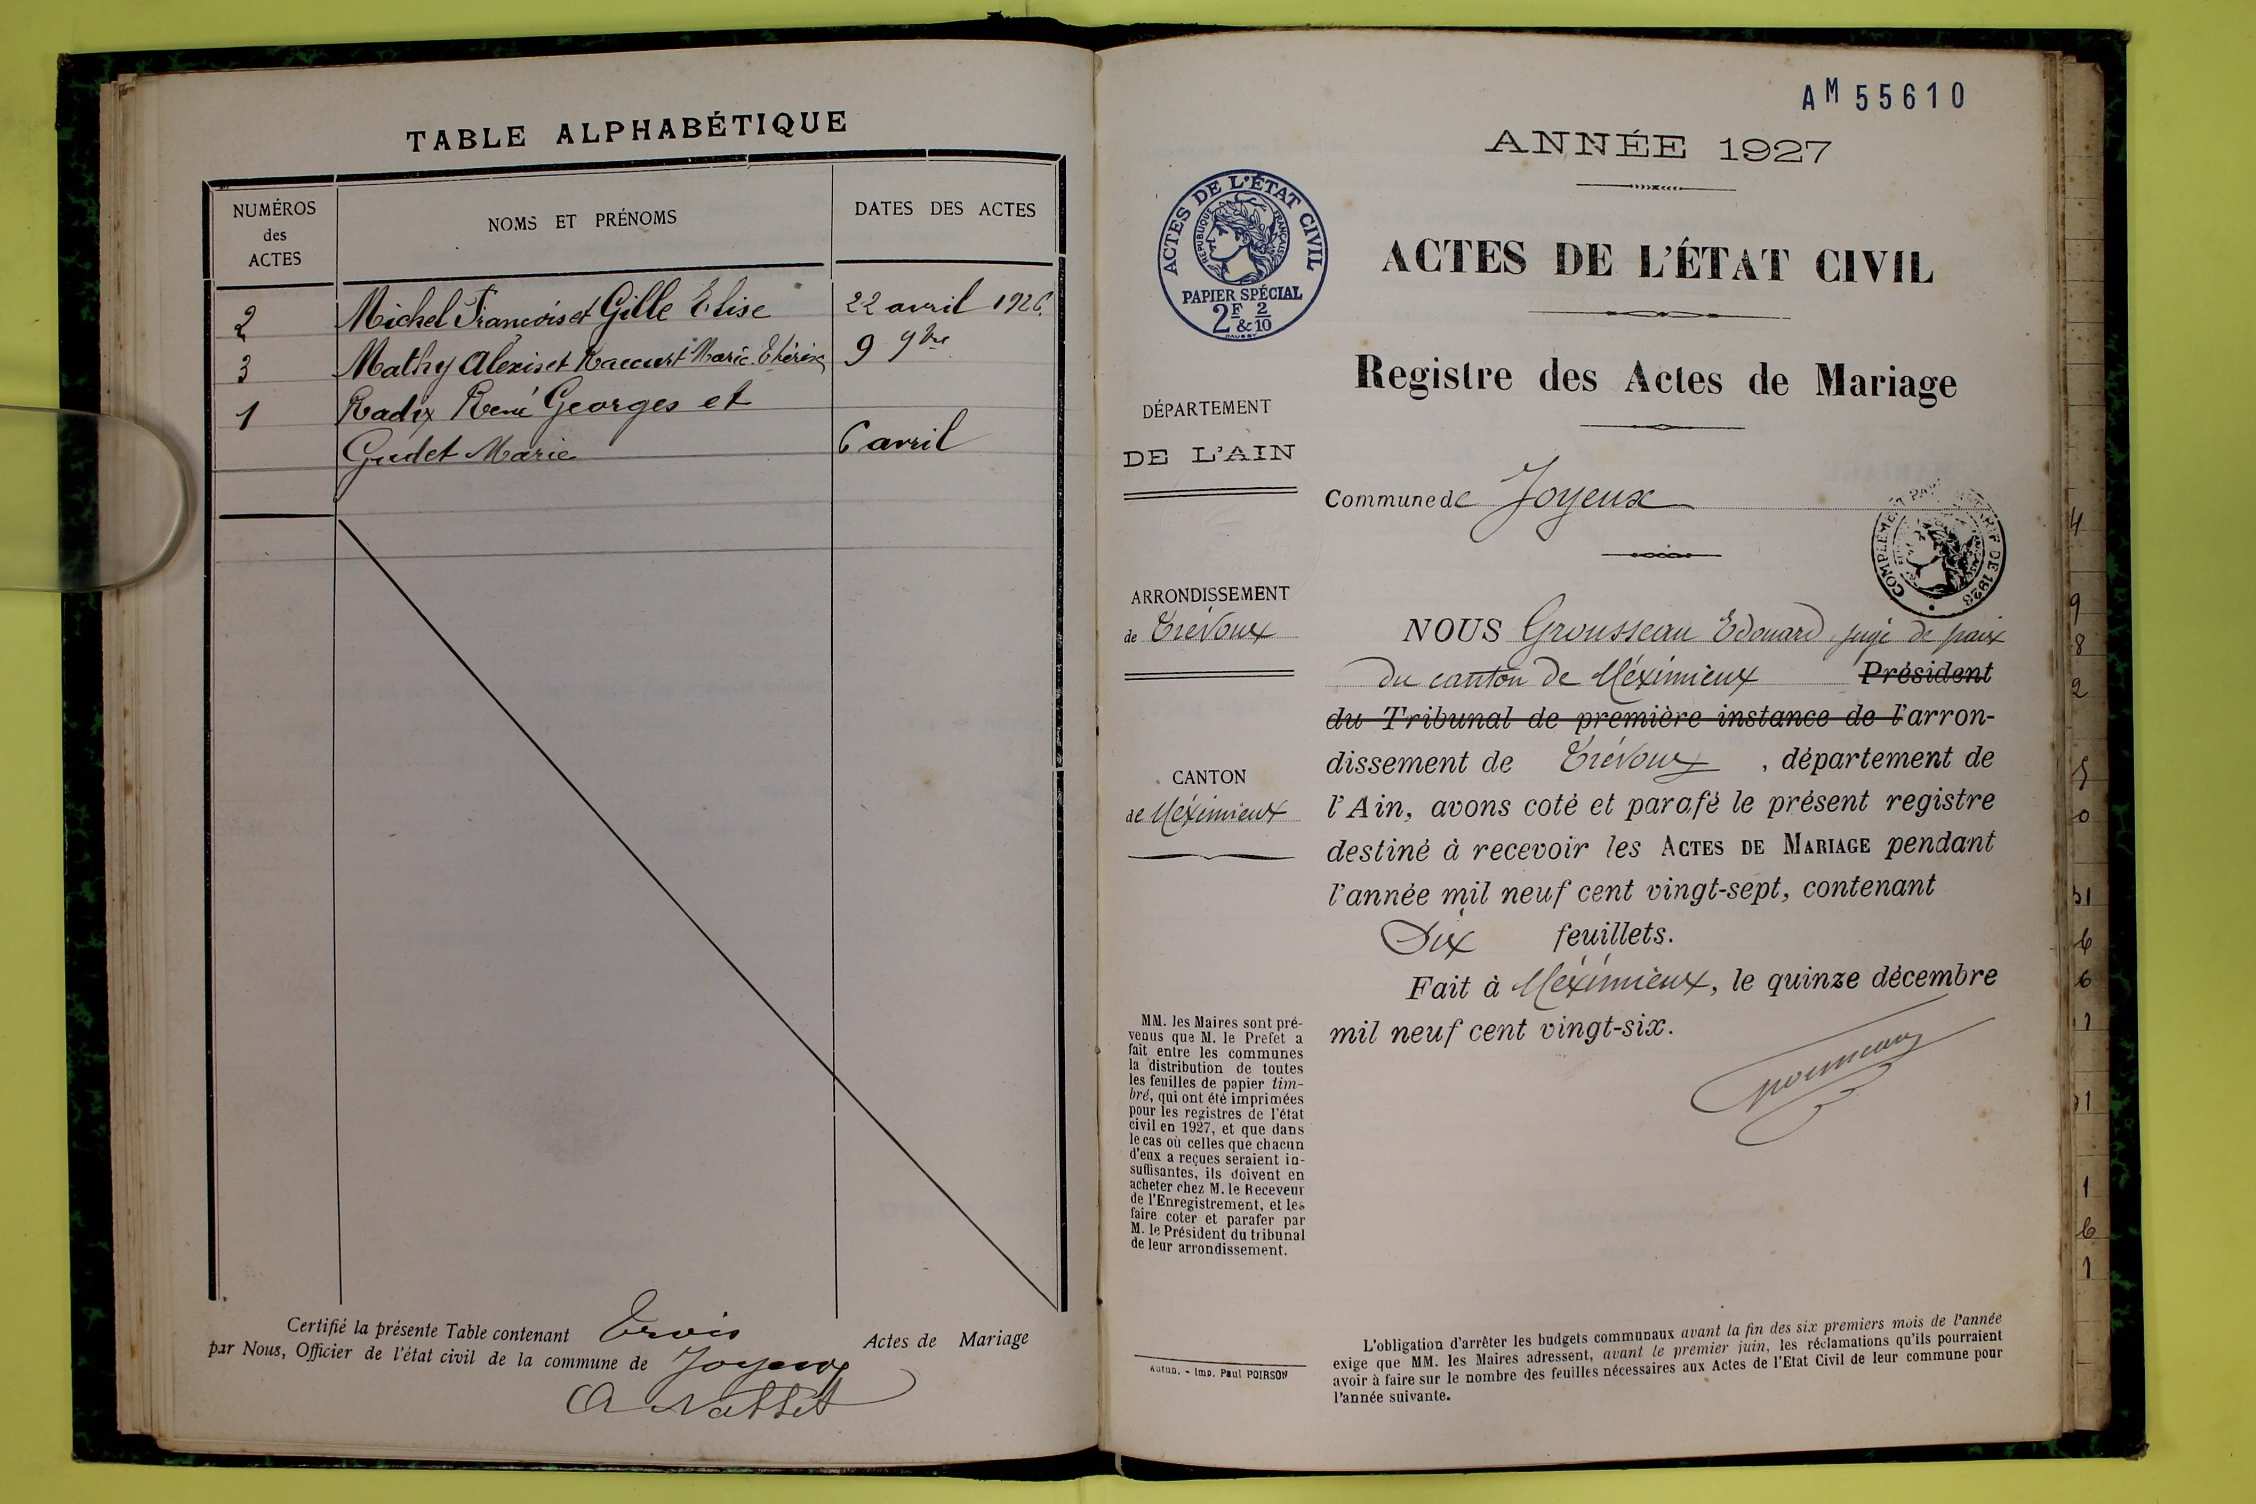 TABLE ALPHABÉTIQUE
NUMÉROS
des
ACTES
NOMS ET PRÉNOMS
DATES DES ACTES
2 Michel François et Gille Elise 22 avril 1926
3 Mathy Alexis et Raccurt Marie Thérèse 9 9bre
1 Radix René Georges et
Gudet Marie 6 avril
Certifié la présente Table contenant Trois Actes de Mariage
par Nous, Officier de l'état civil de la commune de Joyeux
AM 55610
ANNÉE 1927
ACTES DE L'ÉTAT CIVIL
RÉPUBLIQUE FRANÇAISE
PAPIER SPÉCIAL
2F & 2/10
ACTES DE L'ÉTAT CIVIL
Registre des Actes de Mariage
DÉPARTEMENT
DE L'AIN
Commune de Joyeux
COMPLÉMENT DE 1923
ARRONDISSEMENT
de Trévoux
CANTON
de Méximieux
NOUS Grousseau Edouard, juge de paix
du canton de Méximieux Président
du Tribunal de première instance de l'arron-
dissement de Trévoux, département de
l'Ain, avons coté et parafé le présent registre
destiné à recevoir les ACTES DE MARIAGE pendant
l'année mil neuf cent vingt-sept, contenant
Dix feuillets.
Fait à Méximieux, le quinze décembre
mil neuf cent vingt-six.
MM. les Maires sont pré-
venus que M. le Prefet a
fait entre les communes
la distribution de toutes
les feuilles de papier tim-
bré, qui ont été imprimées
pour les registres de l'état
civil en 1927, et que dans
le cas où celles que chacun
d'eux a reçues seraient in-
suffisantes, ils doivent en
acheter chez M. le Receveur
de l'Enregistrement, et les
faire coter et parafer par
M. le Président du tribunal
de leur arrondissement.
Autun. - Imp. Paul POIRSON
L'obligation d'arrêter les budgets communaux avant la fin des six premiers mois de l'année
exige que MM. les Maires adressent, avant le premier juin, les réclamations qu'ils pourraient
avoir à faire sur le nombre des feuilles nécessaires aux Actes de l'Etat Civil de leur commune pour
l'année suivante.